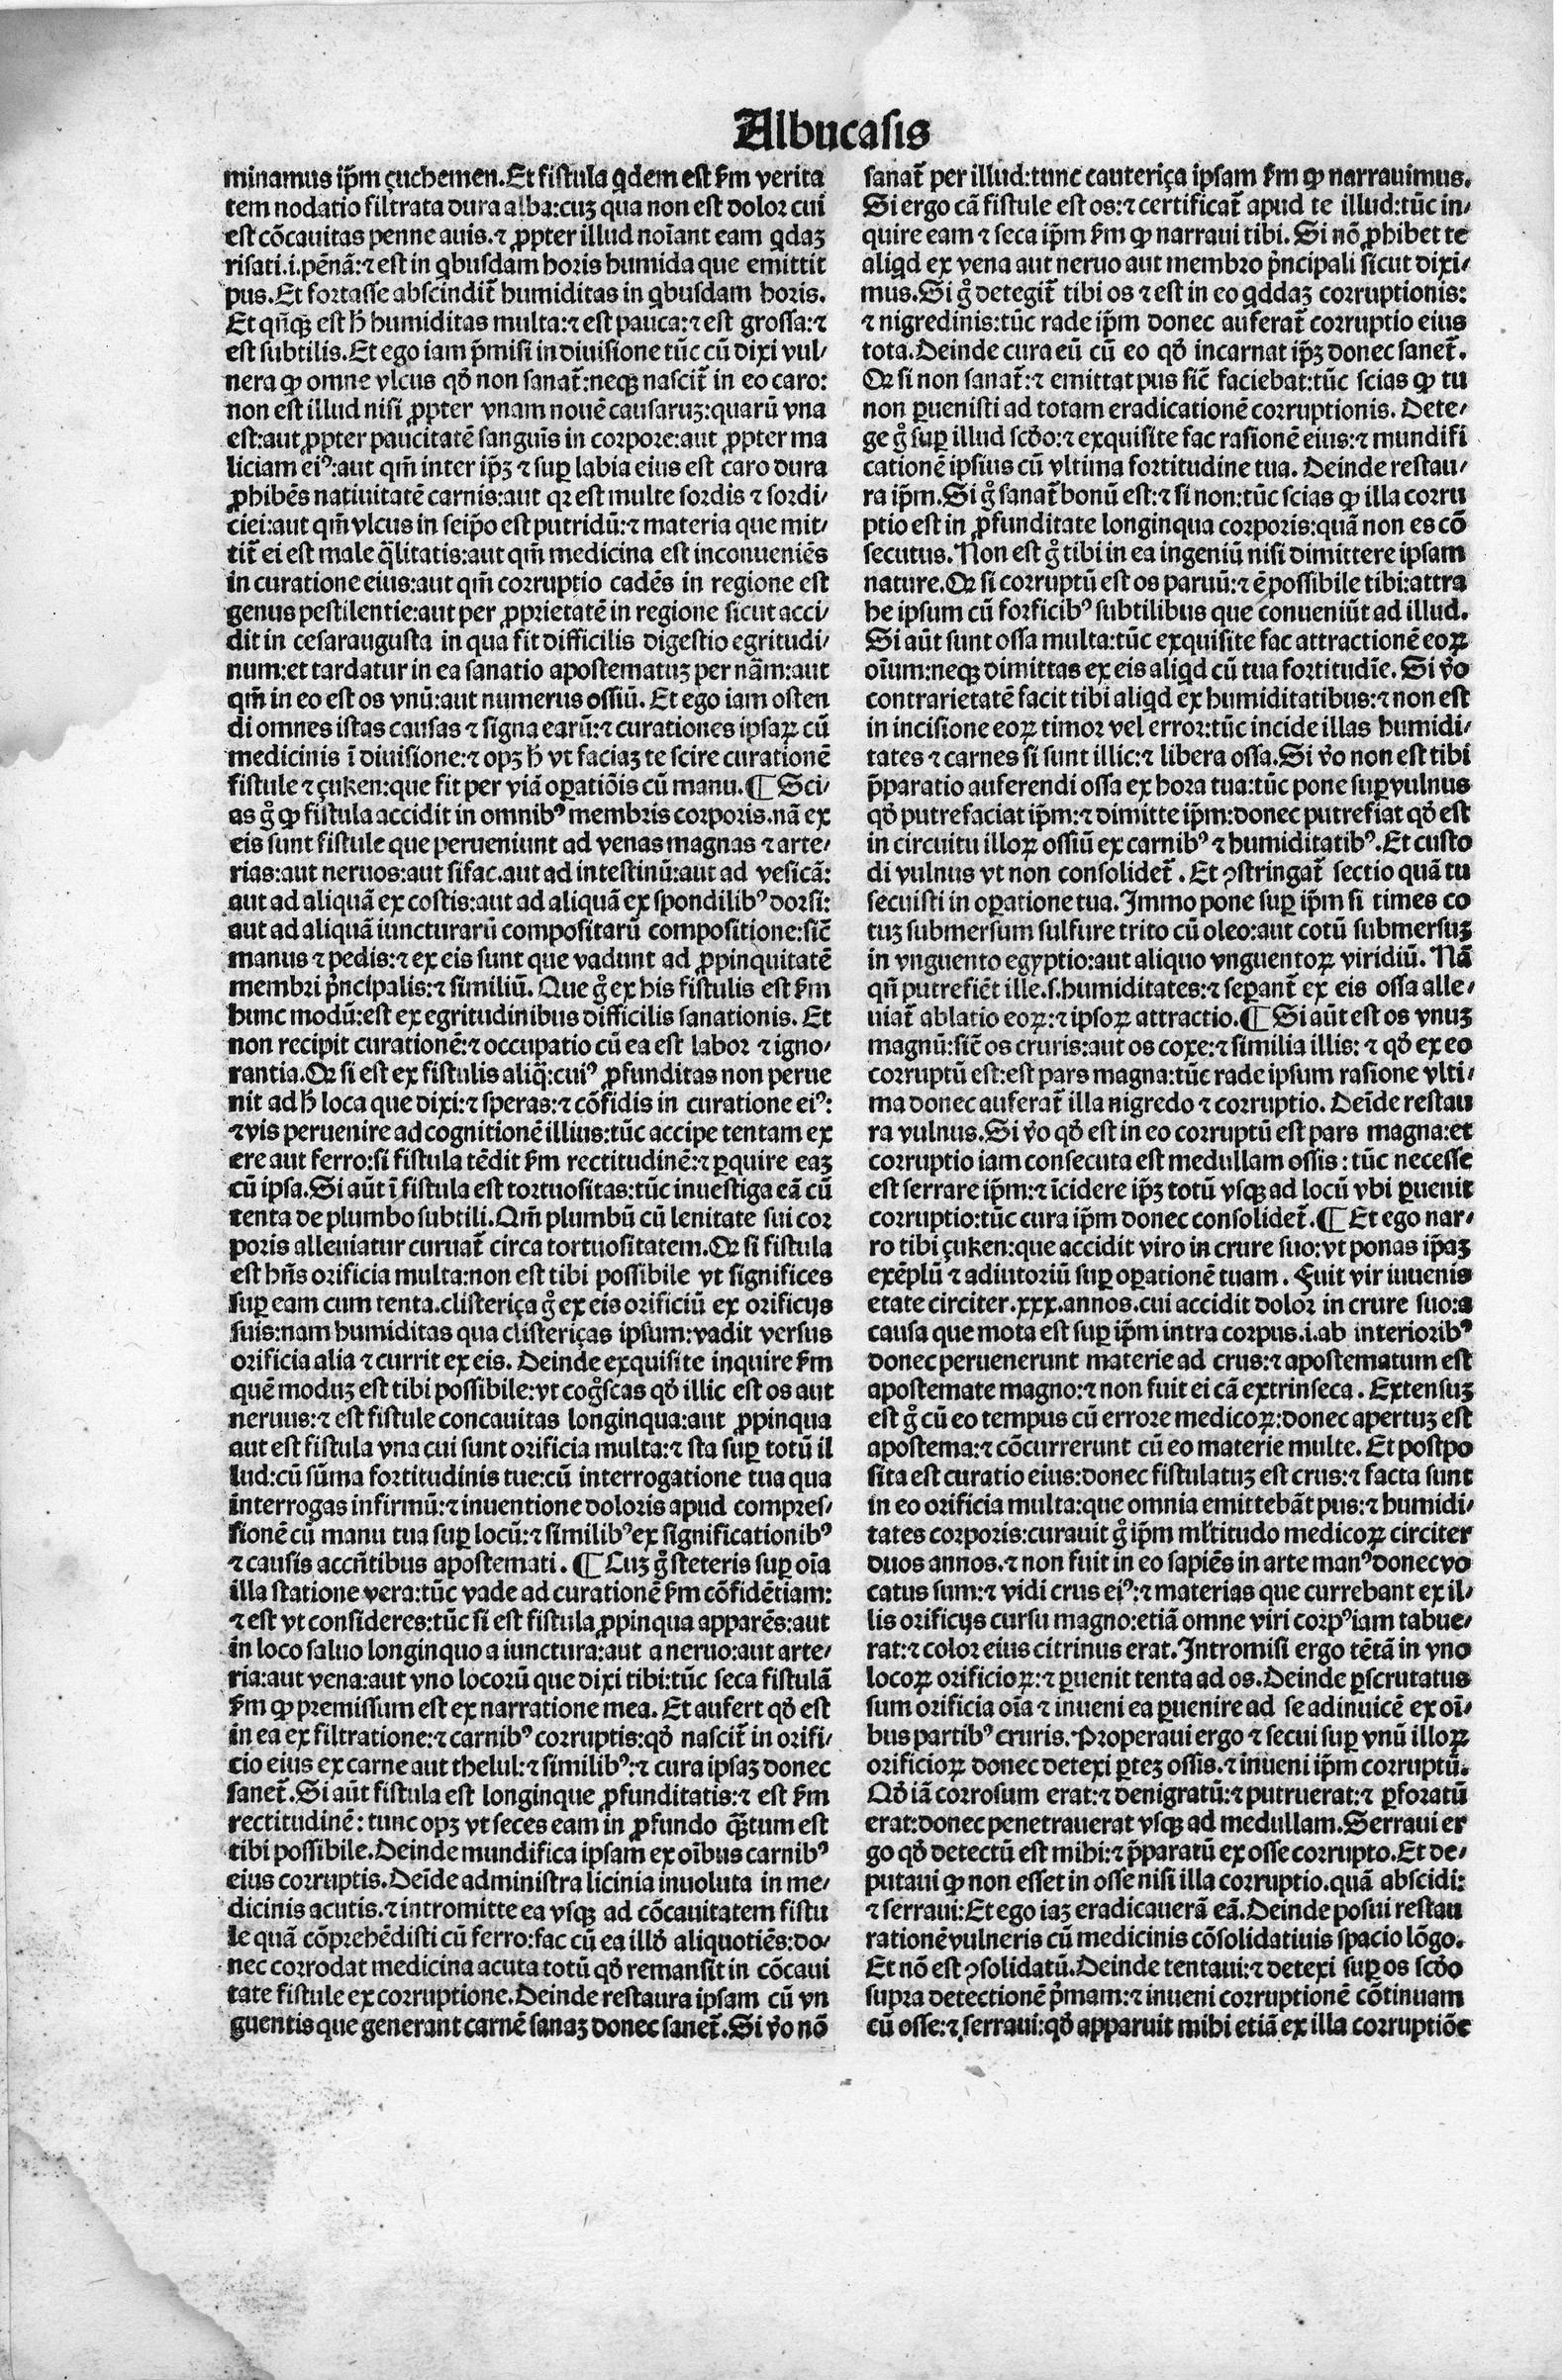 Albucasis
minamus ip̄m çuchemen. Et fistula qdem est ẜm verita
tem nodatio filtrata dura alba: cuȝ qua non est dolor cui
est cōcauitas penne auis. ⁊ ꝓpter illud noīant eam qdaȝ
risati .i. pēnā: ⁊ est in qbusdam horis humida que emittit
pus. Et fortasse abscindit̄ humiditas in qbusdam horis.
Et qn̄qꝫ est h̄ humiditas multa: ⁊ est pauca: ⁊ est grossa: ⁊
est subtilis. Et ego iam p̄misi in diuisione tūc cū dixi vul-
nera ꝙ omne vlcus qd̄ non sanat̄: neqꝫ nascit̄ in eo caro:
non est illud nisi ꝓpter vnam nouē causaruȝ: quarū vna
est: aut ꝓpter paucitatē sanguīs in corpore: aut ꝓpter ma
liciam eiꝰ: aut qm̄ inter ip̄ȝ ⁊ suꝑ labia eius est caro dura
ꝓhibēs natiuitatē carnis: aut qꝛ est multe sordis ⁊ sordi-
ciei: aut qm̄ vlcus in seip̄o est putridū: ⁊ materia que mit-
tit̄ ei est male q̄litatis: aut qm̄ medicina est inconueniēs
in curatione eius: aut qm̄ corruptio cadēs in regione est
genus pestilentie: aut per ꝓprietatē in regione sicut acci-
dit in cesaraugusta in qua fit difficilis digestio egritudi-
num: et tardatur in ea sanatio apostematuȝ per nām: aut
qm̄ in eo est os vnū: aut numerus ossiū. Et ego iam osten
di omnes istas causas ⁊ signa earū: ⁊ curationes ipsaꝝ cū
medicinis ī diuisione: ⁊ opȝ h̄ vt faciaȝ te scire curationē
fistule ⁊ çuken: que fit per viā oꝑatiōis cū manu. ¶ Sci-
as g̊ ꝙ fistula accidit in omnibꝰ membris corporis. nā ex
eis sunt fistule que perueniunt ad venas magnas ⁊ arte-
rias: aut neruos: aut sifac. aut ad intestinū: aut ad vesicā:
aut ad aliquā ex costis: aut ad aliquā ex spondilibꝰ dorsi:
aut ad aliquā iuncturarū compositarū compositione: sic̄
manus ⁊ pedis: ⁊ ex eis sunt que vadunt ad ꝓpinquitatē
membri p̄ncipalis: ⁊ similiū. Que g̊ ex his fistulis est ẜm
hunc modū: est ex egritudinibus difficilis sanationis. Et
non recipit curationē: ⁊ occupatio cū ea est labor ⁊ igno-
rantia. Or si est ex fistulis aliq̄: cuiꝰ ꝓfunditas non perue
nit ad h̄ loca que dixi: ⁊ speras: ⁊ cōfidis in curatione eiꝰ:
⁊ vis peruenire ad cognitionē illius: tūc accipe tentam ex
ere aut ferro: si fistula tēdit ẜm rectitudinē: ⁊ ꝑquire eaȝ
cū ipsa. Si aūt ī fistula est tortuositas: tūc inuestiga eā cū
tenta de plumbo subtili. Qm̄ plumbū cū lenitate sui cor
poris alleuiatur curuat̄ circa tortuositatem. Or si fistula
est hn̄s orificia multa: non est tibi possibile vt significes
suꝑ eam cum tenta. clisteriça g̊ ex eis orificiū ex orificijs
suis: nam humiditas qua clisteriças ipsum: vadit versus
orificia alia ⁊ currit ex eis. Deinde exquisite inquire ẜm
quē moduȝ est tibi possibile: vt cog̊scas qd̄ illic est os aut
neruus: ⁊ est fistule concauitas longinqua: aut ꝓpinqua
aut est fistula vna cui sunt orificia multa: ⁊ sta suꝑ totū il
lud: cū sūma fortitudinis tue: cū interrogatione tua qua
interrogas infirmū: ⁊ inuentione doloris apud compres-
sionē cū manu tua suꝑ locū: ⁊ similibꝰ ex significationibꝰ
⁊ causis accn̄tibus apostemati. ¶ Cuȝ g̊ steteris suꝑ oīa
illa statione vera: tūc vade ad curationē ẜm cōfidētiam:
⁊ est vt consideres: tūc si est fistula ꝓpinqua apparēs: aut
in loco saluo longinquo a iunctura: aut a neruo: aut arte-
ria: aut vena: aut vno locorū que dixi tibi: tūc seca fistulā
ẜm ꝙ premissum est ex narratione mea. Et aufert qd̄ est
in ea ex filtratione: ⁊ carnibꝰ corruptis: qd̄ nascit̄ in orifi-
cio eius ex carne aut thelul: ⁊ similibꝰ: ⁊ cura ipsaȝ donec
sanet̄. Si aūt fistula est longinque ꝓfunditatis: ⁊ est ẜm
rectitudinē: tunc opȝ vt seces eam in ꝓfundo q̄ȝtum est
tibi possibile. Deinde mundifica ipsam ex oībus carnibꝰ
eius corruptis. Deīde administra licinia inuoluta in me-
dicinis acutis. ⁊ intromitte ea vsqꝫ ad cōcauitatem fistu
le quā cōprehēdisti cū ferro: fac cū ea illd̄ aliquotiēs: do-
nec corrodat medicina acuta totū qd̄ remansit in cōcaui
tate fistule ex corruptione. Deinde restaura ipsam cū vn
guentis que generant carnē sanaȝ donec sanet̄. Si v̄o nō
sanat̄ per illud: tunc cauteriça ipsam ẜm ꝙ narrauimus.
Si ergo cā fistule est os: ⁊ certificat̄ apud te illud: tūc in-
quire eam ⁊ seca ip̄m ẜm ꝙ narraui tibi. Si nō ꝓhibet te
aliqd ex vena aut neruo aut membro p̄ncipali sicut dixi-
mus. Si g̊ detegit̄ tibi os ⁊ est in eo qddaȝ corruptionis:
⁊ nigredinis: tūc rade ip̄m donec auferat̄ corruptio eius
tota. Deinde cura eū cū eo qd̄ incarnat ip̄ȝ donec sanet̄.
Or si non sanat̄: ⁊ emittat pus sic̄ faciebat: tūc scias ꝙ tu
non ꝑuenisti ad totam eradicationē corruptionis. Dete-
ge g̊ suꝑ illud scd̄o: ⁊ exquisite fac rasionē eius: ⁊ mundifi
cationē ipsius cū vltima fortitudine tua. Deinde restau-
ra ip̄m. Si g̊ sanat̄ bonū est: ⁊ si non: tūc scias ꝙ illa corru
ptio est in ꝓfunditate longinqua corporis: quā non es cō
secutus. Non est g̊ tibi in ea ingeniū nisi dimittere ipsam
nature. Or si corruptū est os paruū: ⁊ ē possibile tibi: attra
he ipsum cū forficibꝰ subtilibus que conueniūt ad illud.
Si aūt sunt ossa multa: tūc exquisite fac attractionē eoꝝ
oīum: neqꝫ dimittas ex eis aliqd cū tua fortitudīe. Si v̄o
contrarietatē facit tibi aliqd ex humiditatibus: ⁊ non est
in incisione eoꝝ timor vel error: tūc incide illas humidi-
tates ⁊ carnes si sunt illic: ⁊ libera ossa. Si v̄o non est tibi
p̄paratio auferendi ossa ex hora tua: tūc pone suꝑ vulnus
qd̄ putrefaciat ip̄m: ⁊ dimitte ip̄m: donec putrefiat qd̄ est
in circuitu illoꝝ ossiū ex carnibꝰ ⁊ humiditatibꝰ. Et custo
di vulnus vt non consolidet̄. Et ꝯstringat̄ sectio quā tu
secuisti in oꝑatione tua. Immo pone suꝑ ip̄m si times co
tuȝ submersum sulfure trito cū oleo: aut cotū submersuȝ
in vnguento egyptio: aut aliquo vnguentoꝝ viridiū. Nā
qn̄ putrefiēt ille .s. humiditates: ⁊ seꝑant̄ ex eis ossa alle-
uiat̄ ablatio eoꝝ: ⁊ ipsoꝝ attractio. ¶ Si aūt est os vnuȝ
magnū: sic̄ os cruris: aut os coxe: ⁊ similia illis: ⁊ qd̄ ex eo
corruptū est: est pars magna: tūc rade ipsum rasione vlti-
ma donec auferat̄ illa nigredo ⁊ corruptio. Deīde restau
ra vulnus. Si v̄o qd̄ est in eo corruptū est pars magna: et
corruptio iam consecuta est medullam ossis: tūc necesse
est serrare ip̄m: ⁊ īcidere ip̄ȝ totū vsqꝫ ad locū vbi ꝑuenit
corruptio: tūc cura ip̄m donec consolidet̄. ¶ Et ego nar-
ro tibi çuken: que accidit viro in crure suo: vt ponas ip̄aȝ
exēplū ⁊ adiutoriū suꝑ oꝑationē tuam. Fuit vir iuuenis
etate circiter .xxx. annos. cui accidit dolor in crure suo: a
causa que mota est suꝑ ip̄m intra corpus .i. ab interioribꝰ
donec peruenerunt materie ad crus: ⁊ apostematum est
apostemate magno: ⁊ non fuit ei cā extrinseca. Extensuȝ
est g̊ cū eo tempus cū errore medicoꝝ: donec apertuȝ est
apostema: ⁊ cōcurrerunt cū eo materie multe. Et postpo
sita est curatio eius: donec fistulatuȝ est crus: ⁊ facta sunt
in eo orificia multa: que omnia emittebāt pus: ⁊ humidi-
tates corporis: curauit g̊ ip̄m ml̄titudo medicoꝝ circiter
duos annos. ⁊ non fuit in eo sapiēs in arte manꝰ donec vo
catus sum: ⁊ vidi crus eiꝰ: ⁊ materias que currebant ex il-
lis orificijs cursu magno: etiā omne viri corpꝰ iam tabue-
rat: ⁊ color eius citrinus erat. Intromisi ergo tētā in vno
locoꝝ orificioꝝ: ⁊ ꝑuenit tenta ad os. Deinde ꝑscrutatus
sum orificia oīa ⁊ inueni ea ꝑuenire ad se adinuicē ex oī-
bus partibꝰ cruris. Properaui ergo ⁊ secui suꝑ vnū illoꝝ
orificioꝝ donec detexi ꝑteȝ ossis. ⁊ inueni ip̄m corruptū.
Qd̄ iā corrosum erat: ⁊ denigratū: ⁊ putruerat: ⁊ ꝑforatū
erat: donec penetrauerat vsqꝫ ad medullam. Serraui er
go qd̄ detectū est mihi: ⁊ p̄paratū ex osse corrupto. Et de-
putaui ꝙ non esset in osse nisi illa corruptio. quā abscidi:
⁊ serraui: Et ego iaȝ eradicauerā eā. Deinde posui restau
rationē vulneris cū medicinis cōsolidatiuis spacio lōgo.
Et nō est ꝯsolidatū. Deinde tentaui: ⁊ detexi suꝑ os scd̄o
supra detectionē p̄mam: ⁊ inueni corruptionē cōtinuam
cū osse: ⁊ serraui: qd̄ apparuit mihi etiā ex illa corruptiōe